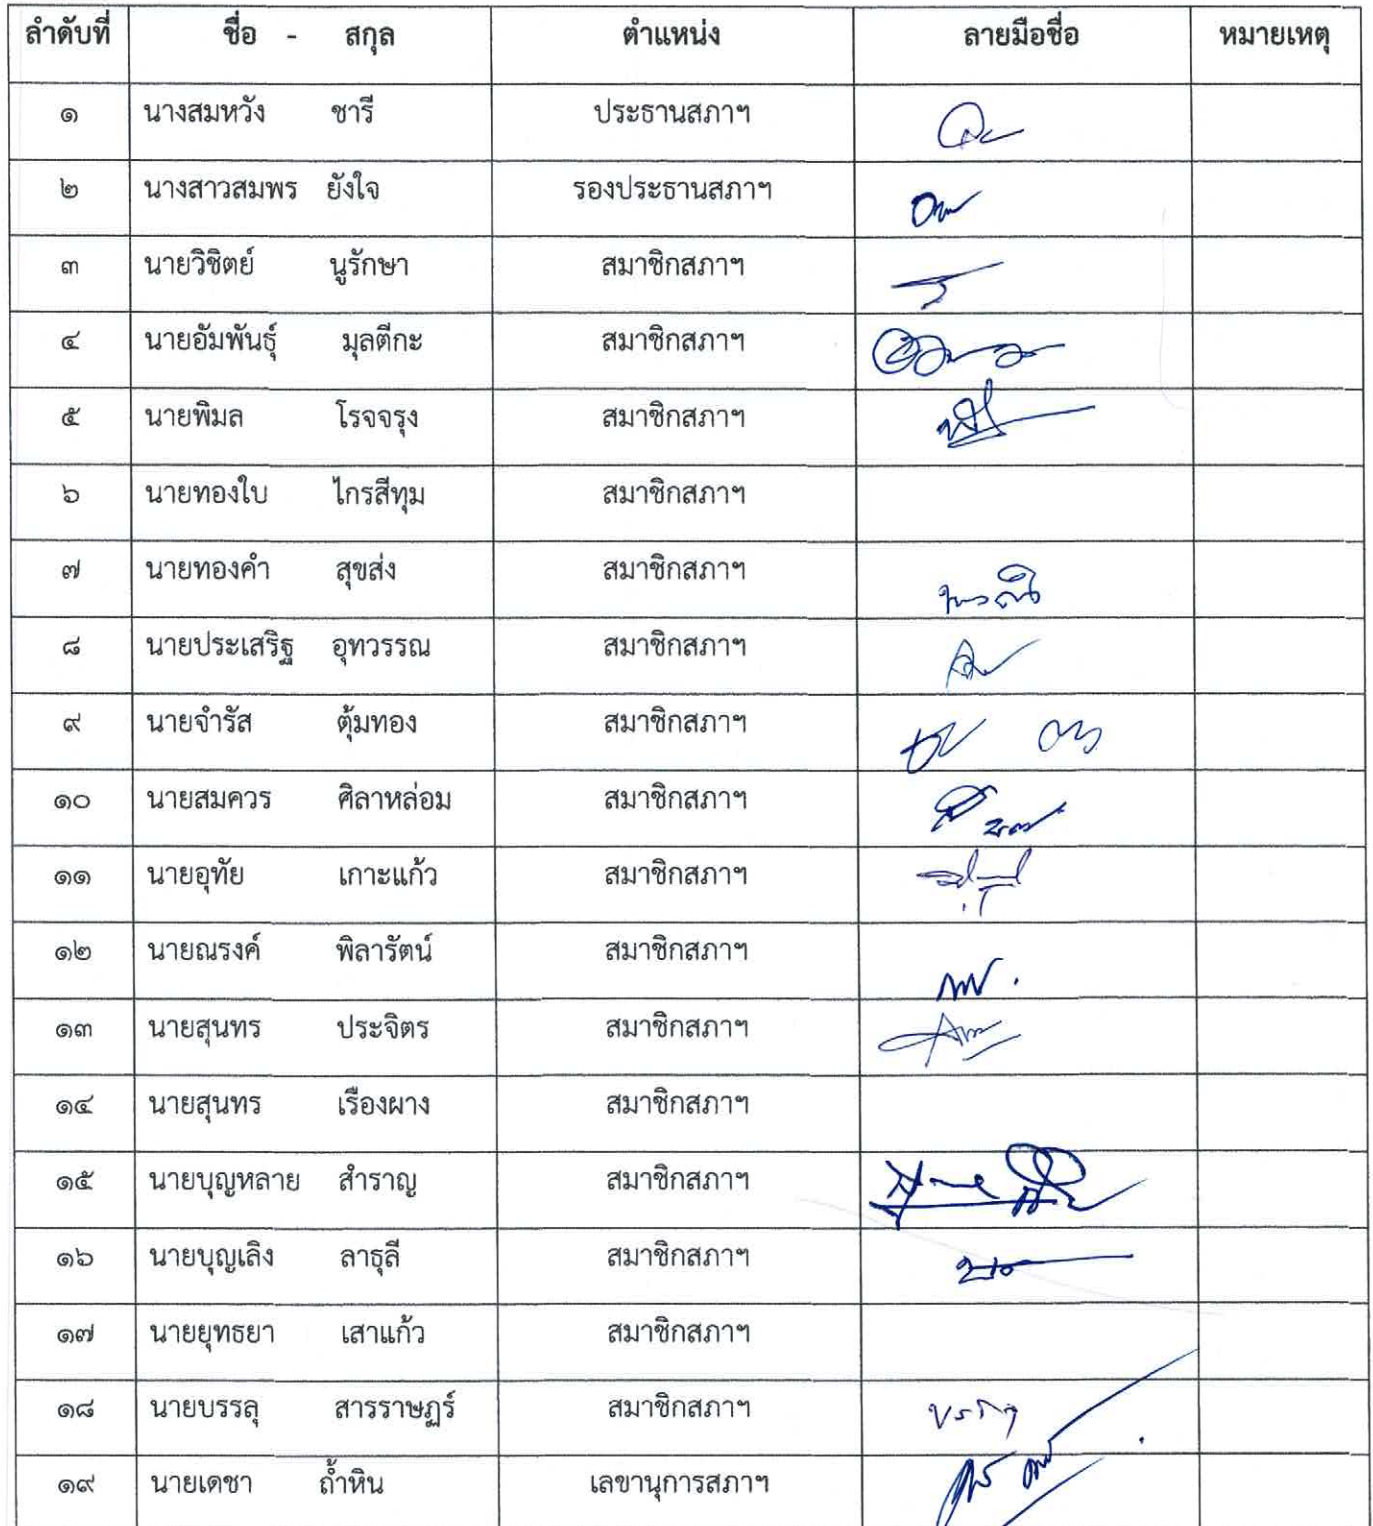 ลำดับที่ ชื่อ - สกุล ตำแหน่ง ลายมือชื่อ หมายเหตุ
๑ นางสมหวัง ชารี ประธานสภาฯ
๒ นางสาวสมพร ยังใจ รองประธานสภาฯ
๓ นายวิชิตย์ นูรักษา สมาชิกสภาฯ
๔ นายอัมพันธุ์ มุลตีกะ สมาชิกสภาฯ
๕ นายพิมล โรจจรุง สมาชิกสภาฯ
๖ นายทองใบ ไกรสีทุม สมาชิกสภาฯ
๗ นายทองคำ สุขส่ง สมาชิกสภาฯ
๘ นายประเสริฐ อุทวรรณ สมาชิกสภาฯ
๙ นายจำรัส ตุ้มทอง สมาชิกสภาฯ
๑๐ นายสมควร ศิลาหล่อม สมาชิกสภาฯ
๑๑ นายอุทัย เกาะแก้ว สมาชิกสภาฯ
๑๒ นายณรงค์ พิลารัตน์ สมาชิกสภาฯ
๑๓ นายสุนทร ประจิตร สมาชิกสภาฯ
๑๔ นายสุนทร เรืองผาง สมาชิกสภาฯ
๑๕ นายบุญหลาย สำราญ สมาชิกสภาฯ
๑๖ นายบุญเลิง ลาธุลี สมาชิกสภาฯ
๑๗ นายยุทธยา เสาแก้ว สมาชิกสภาฯ
๑๘ นายบรรลุ สารราษฏร์ สมาชิกสภาฯ
๑๙ นายเดชา ถ้ำหิน เลขานุการสภาฯ